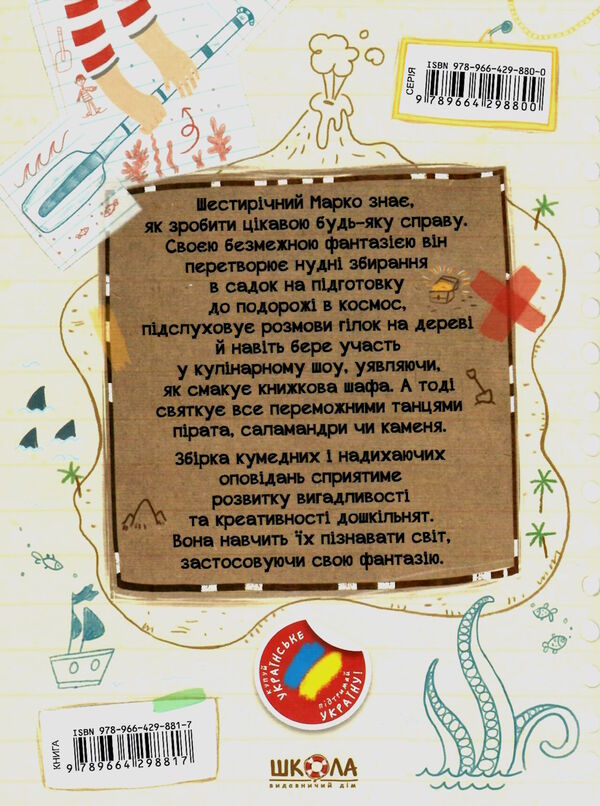 СЕРІЯ
ISBN 978-966-429-880-0
9 789664 298800
Шестирічний Марко знає,
як зробити цікавою будь-яку справу.
Своєю безмежною фантазією він
перетворює нудні збирання
в садок на підготовку
до подорожі в космос,
підслуховує розмови гілок на дереві
й навіть бере участь
у кулінарному шоу, уявляючи,
як смакує книжкова шафа. А тоді
святкує все переможними танцями
пірата, саламандри чи каменя.
Збірка кумедних і надихаючих
оповідань сприятиме
розвитку вигадливості
та креативності дошкільнят.
Вона навчить їх пізнавати світ,
застосовуючи свою фантазію.
КУПУЙ
УКРАЇНСЬКЕ
ПІДТРИМАЙ
УКРАЇНУ!
КНИГА
ISBN 978-966-429-881-7
9 789664 298817
ШКОЛА
видавничий дім